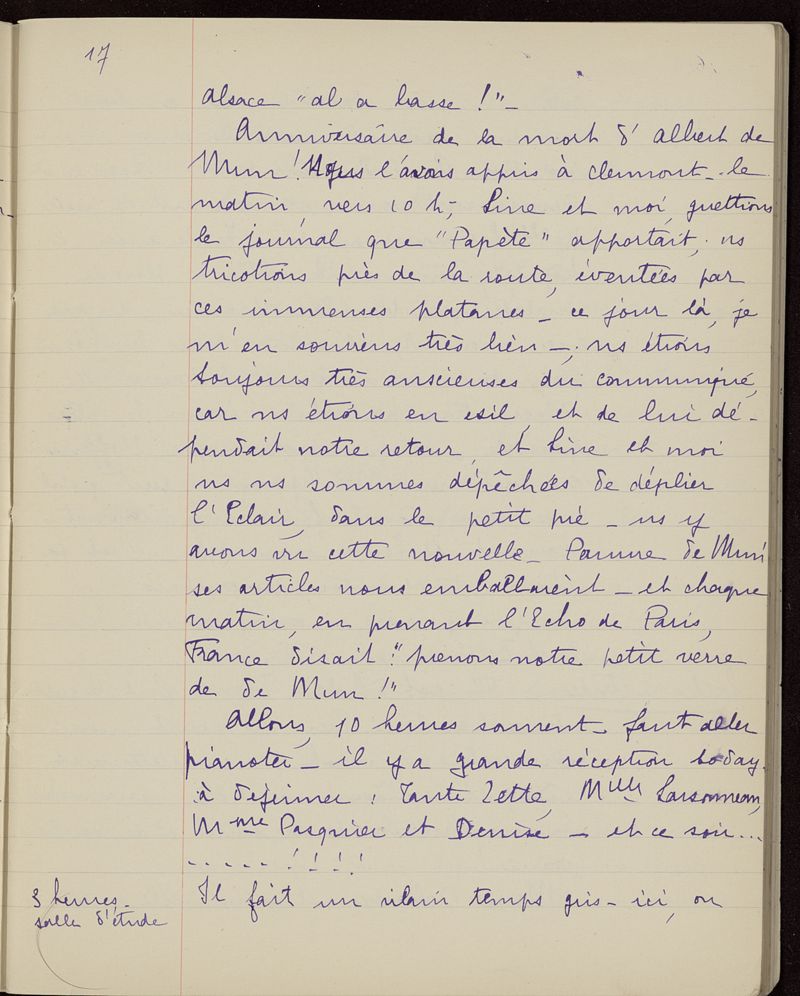 17
Alsace "al a basse !" –
Anniversaire de la mort d'Albert de
Mun ! Nous l'avons appris à Clermont – le
matin, vers 10 h –, Line et moi, guettions
le journal que "Papète" apportait, ns
tricotions près de la route, éventées par
ces immenses platanes – ce jour là, je
m'en souviens très bien –, ns étions
toujours très anscieuses du communiqué,
car ns étions en exil, et de lui dé-
pendait notre retour, et Line et moi
ns ns sommes dépêchées de déplier
l'Eclair, dans le petit pré – ns y
avons vu cette nouvelle – Pauvre de Mun
ses articles nous emballaient – et chaque
matin, en prenant l'Echo de Paris,
France disait : "prenons notre petit verre
de de Mun !"
Allons, 10 heures sonnent – faut aller
pianoter – il y a grande réception to day
à déjeuner : Tante Zette, Melle
Mme Pasquier et Denise – et ce soir ...
..... ! ! ! !
3 heures –
salle d'étude
Il fait un vilain temps gris – ici, on